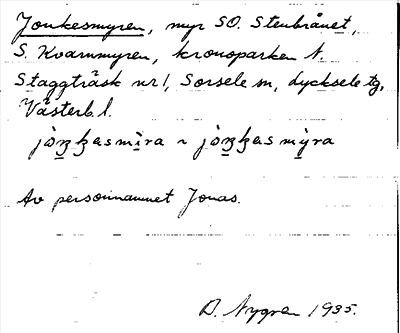 Jonkesmyren, myr SO. Stenbrånet,
S. Kvarnmyren, kronoparken N.
Staggträsk nr 1, Sorsele sn, Lycksele tg,
Västerb. l.
Av personnamnet Jonas.
D. Nygren 1935.